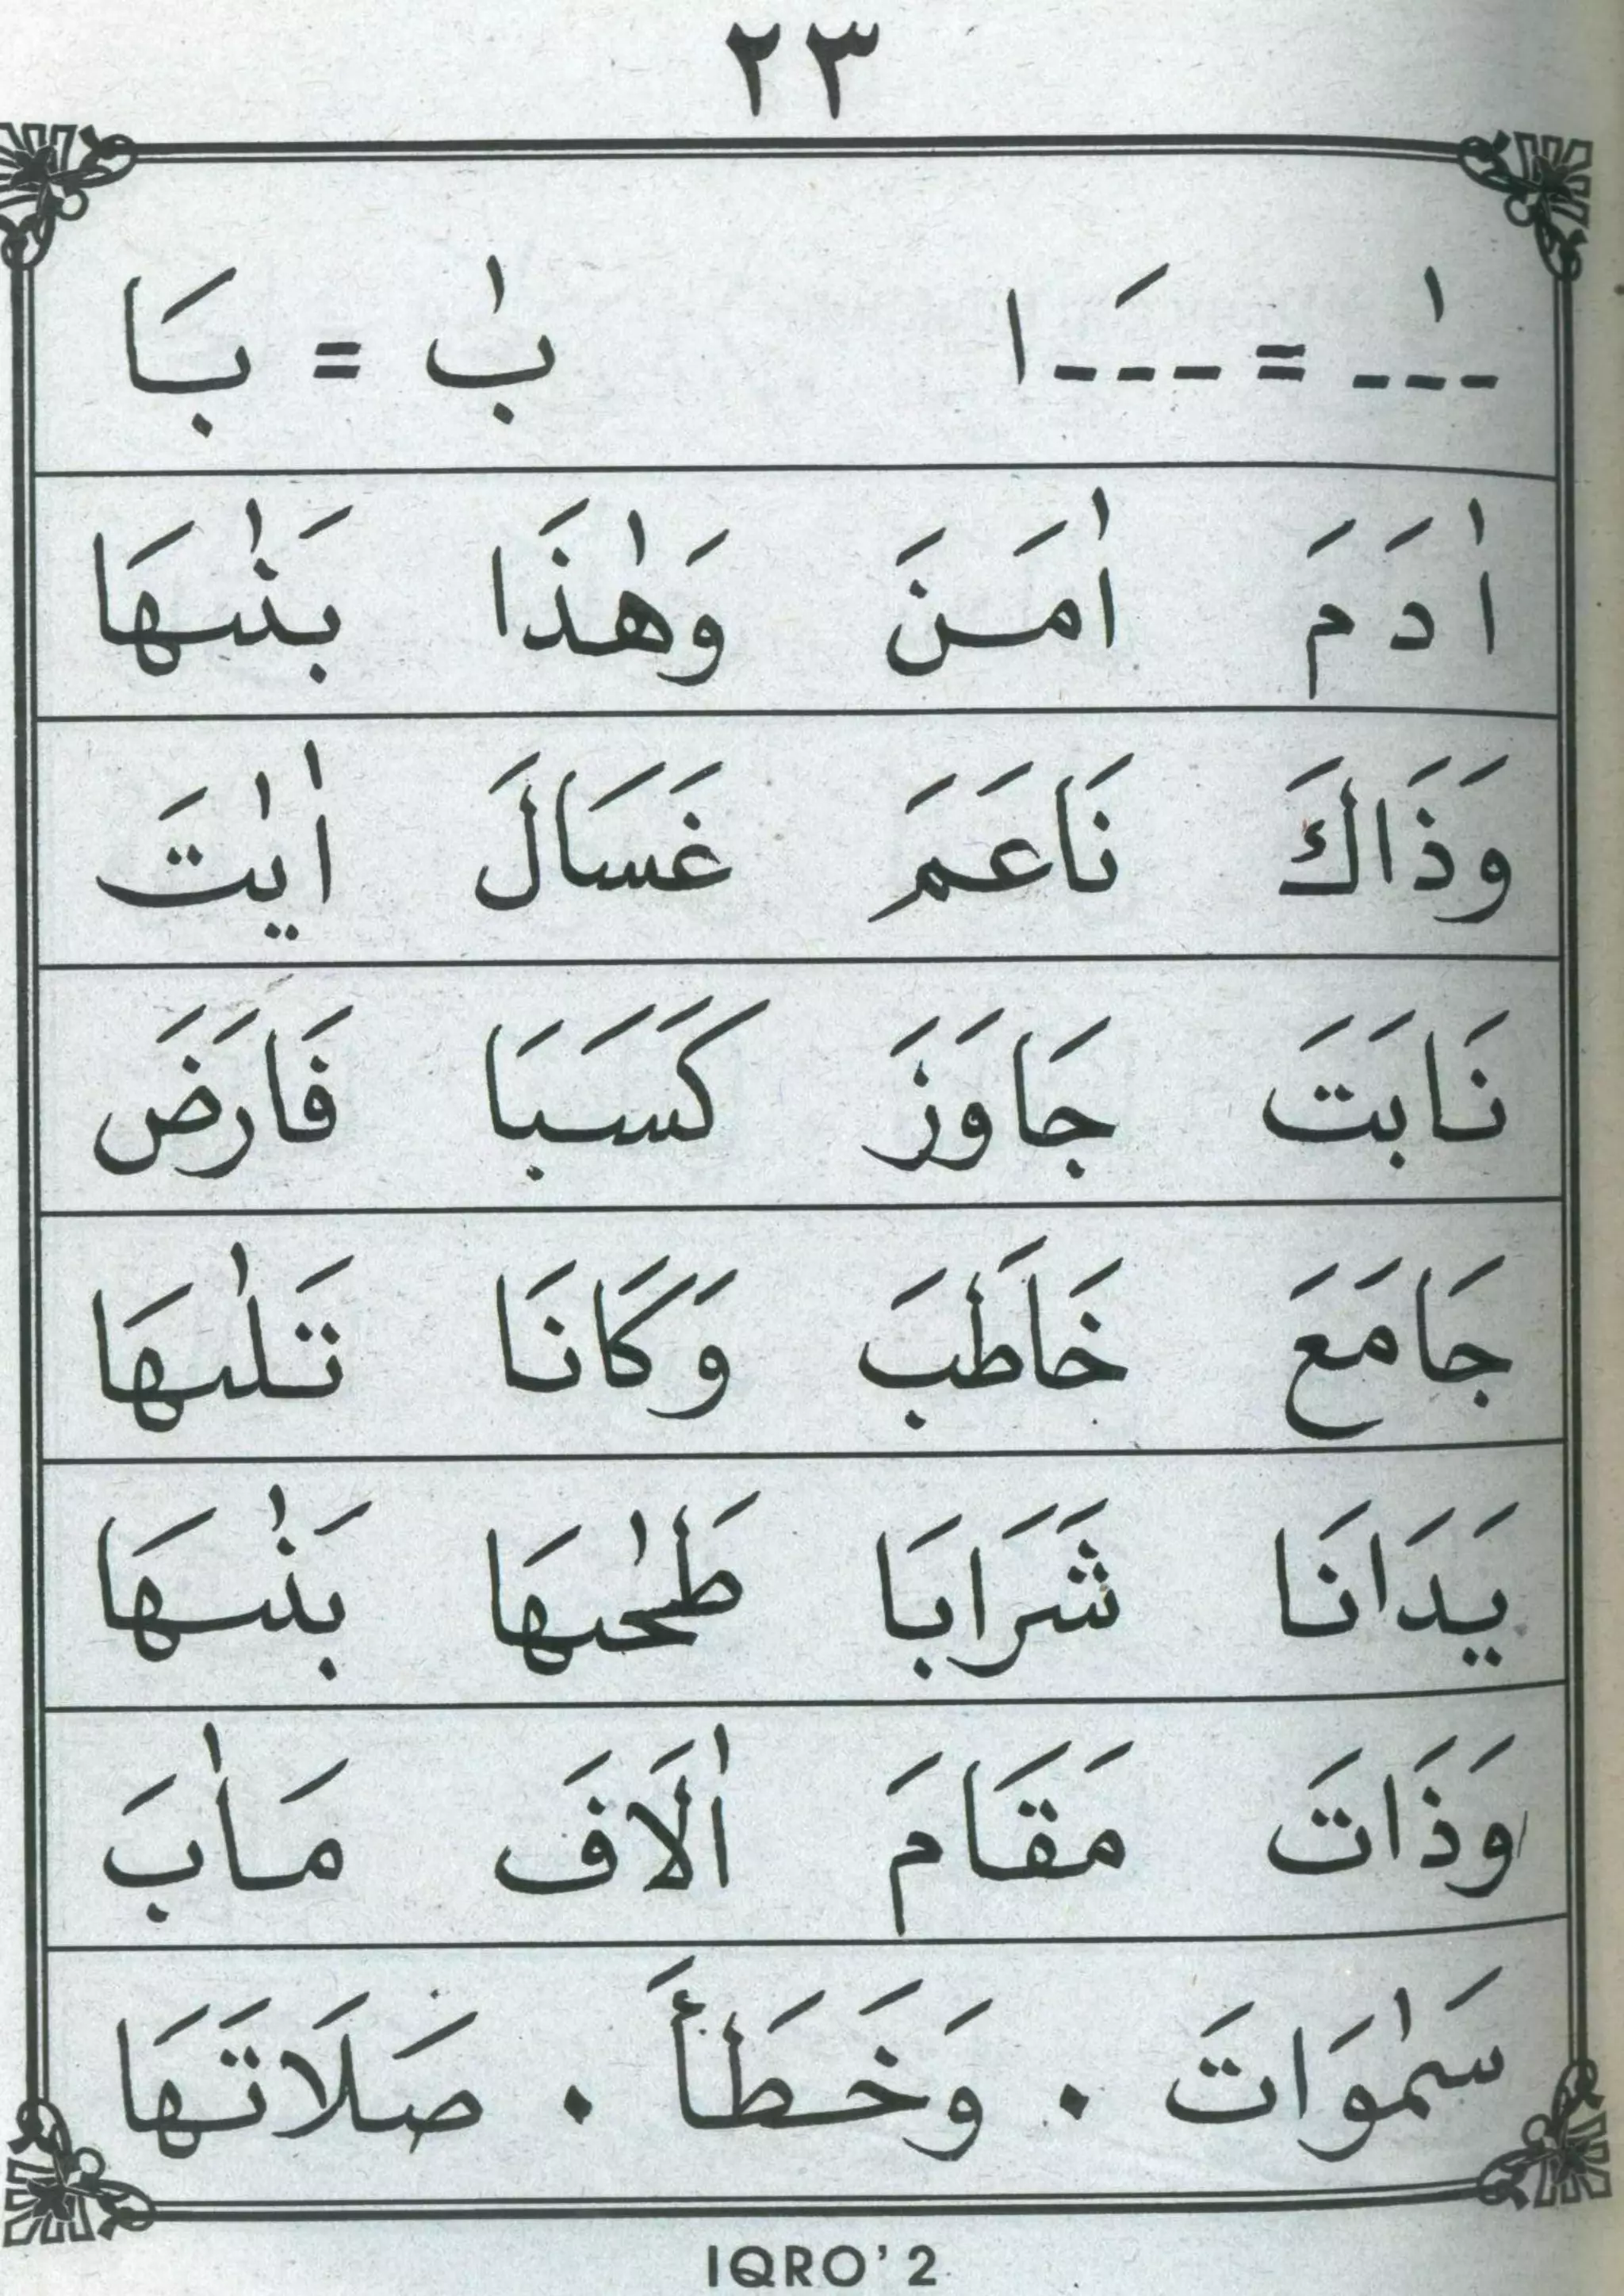 ٢٣
ـٰـ = ـَـا بٰ = بَا
اٰدَمَ اٰمَنَ وَهٰذَا بَنٰىهَا
وَذَاكَ نَاعَمَ غَسَالَ اٰيٰتَ
نَابَتَ جَاوَزَ كَسَبَا فَارَضَ
جَامَعَ خَاطَبَ وَكَانَا تَلٰىهَا
يَدَانَا شَرَابَا طَحٰىهَا بَنٰىهَا
وَذَاتَ مَقَامَ اٰلَافَ مَاٰبَ
سَمٰوَاتَ . وَخَطَأَ . صَلَاتَهَا
IQRO' 2